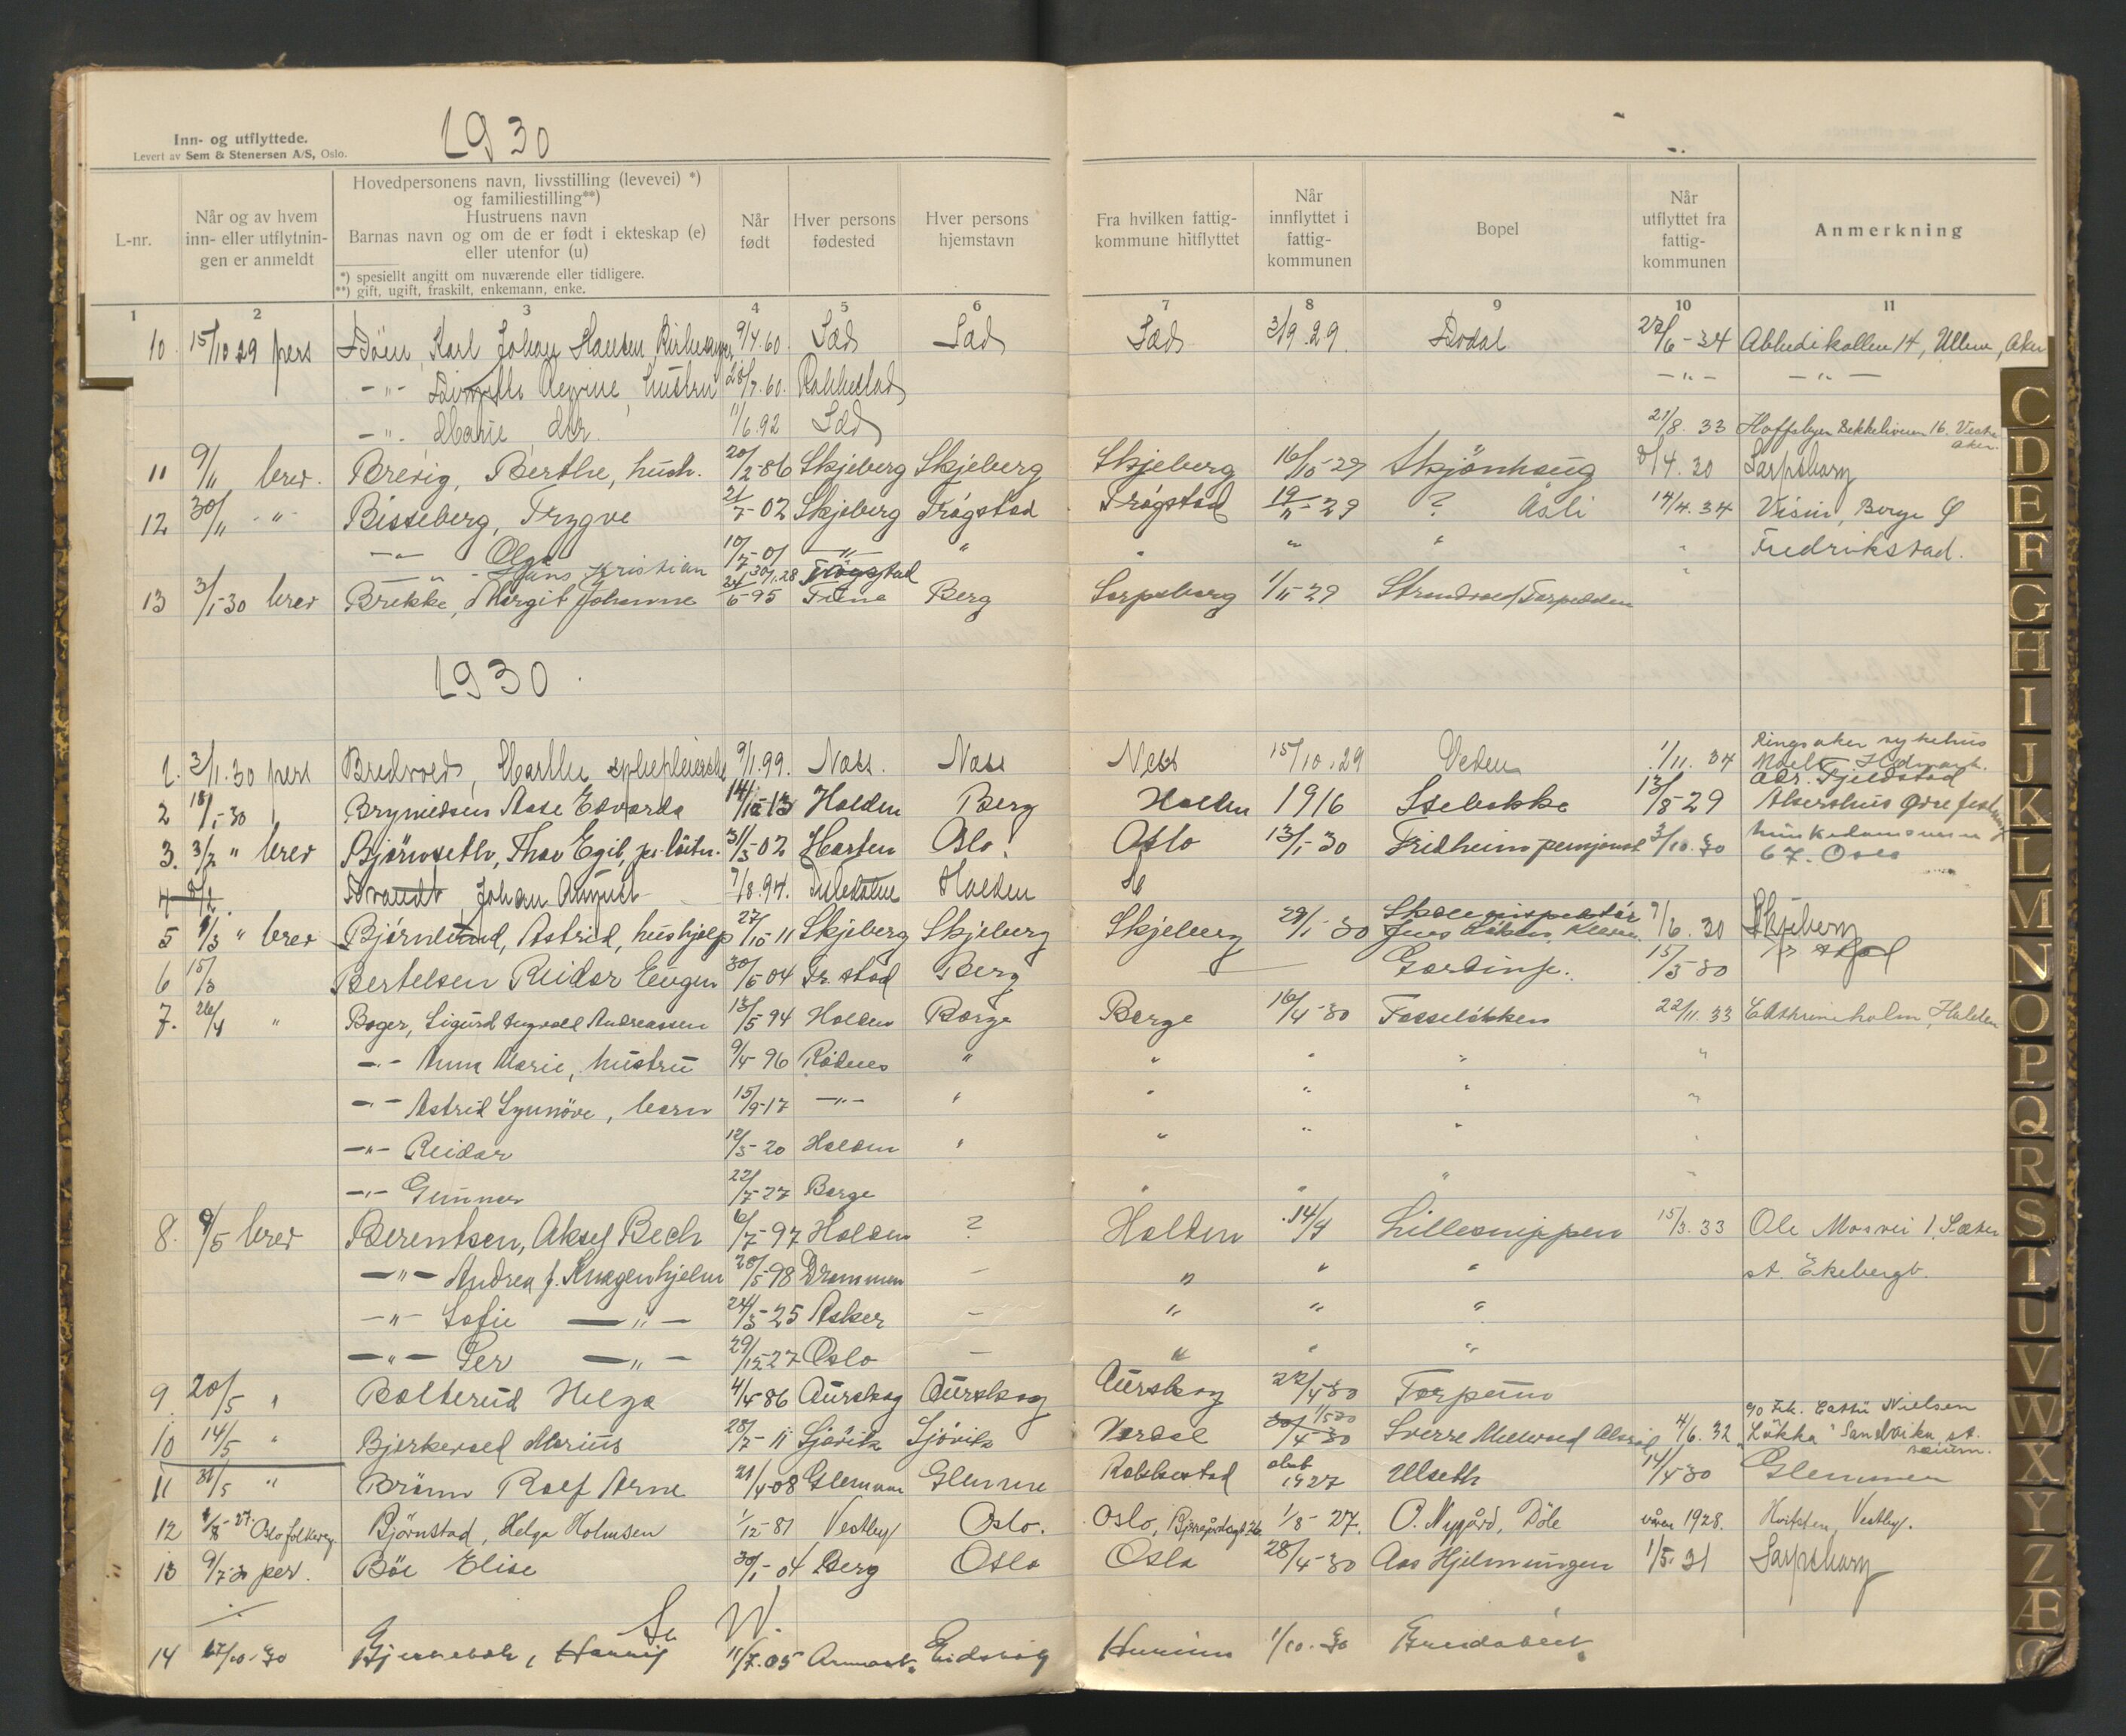 Inn- og utflyttede.
Levert av Sem & Stenersen A/S, Oslo.
1930
L-nr.
Når og av hvem inn- eller utflytnin-gen er anmeldt
Hovedpersonens navn, livsstilling (levevei) *)
og familiestilling**)
Hustruens navn
Barnas navn og om de er født i ekteskap (e)
eller utenfor (u)
*) spesiellt angitt om nuværende eller tidligere.
**) gift, ugift, fraskilt, enkemann, enke.
Når født
Hver persons fødested
Hver persons hjemstavn
Fra hvilken fattig-kommune hitflyttet
Når innflyttet i fattig-kommunen
Bopel
Når utflyttet fra fattig-kommunen
Anmerkning
1 2 3 4 5 6 7 8 9 10 11
10. 15/10 29 pers Karl Johan Hansen 9/4.60. 3/9.29 22/6-34 14, Aker
-"- hustru 28/7.60. -"- -"-
-"- Marie 11/6.92 21/8.33 16. Vestre Aker.
11 9/11 brev. Brevig, Berthe, hush. 20/2-86 Skjeberg Skjeberg Skjeberg 16/10-29 Skjönhaug 8/4.30 Sarpsborg
12 30/11 -"- Bisseberg, Trygve 21/7-02 Skjeberg Trøgstad Trøgstad 19/11-29 ? Åsli 14/4.34 Borge
-"- Olga 10/7-01 -"- " " " " " Fredrikstad.
-"- Hans Kristian 30/1.28 Trøgstad
13 3/1-30 brev Brekke, Margit Johanne 24/6-95 Berg Sarpsborg 1/11-29
1930.
1. 3/1.30 pers Bredvold, Marthe 9/1.99. Næss. Næss Ness 15/10.29 Veden 1/11.34 Ringsaker sykehus
2 18/1-30 Brynildsen Aase Edvarda 14/10-13 Halden Berg Halden 1916 Isebakke 13/8-29 Adr. Fjeldstad Akershus
3. 3/2 " brev Bjørnseth, Thor Egil, 31/3-02 Horten Oslo. Oslo 13/1-30 Fridheim pensjonat 3/10.30 67. Oslo
4 Johan August 7/8.94. Halden
5 1/3 " brev Bjørnlund, Astrid, hushjelp 27/10-11 Skjeberg Skjeberg Skjeberg 29/1-30 7/6.30 Skjeberg
6 15/3 Bertelsen Reidar Eugen 30/6-04 Fr.stad Berg 15/3-30
7. 26/4 " Boger, Sigurd Ingvald Andreassen 13/5-94 Halden Borge Borge 16/4-30 Fosseløkken 22/11.33 Cathrineholm, Halden
-"- Anna Marie, hustru 9/4-96 Rødenes " " " " "
-"- Astrid Synnöve, barn 15/9-17 -"- " " " " "
-"- Reidar 12/5-20 Halden " " " " "
-"- Gunnar 22/7-27 Borge " " "
8. 9/5 brev Berentsen, Aksel Bech 6/7-97 Halden ? Halden 14/4 Lillesnippen 15/3.33 Ole Mosvei 1, Sæter
-"- Andrea f. Knagenhjelm 28/5-98 Drammen - " " " st. Ekebergb.
-"- Sofie -"- 24/3-25 Asker - " " "
-"- Per -"- 29/12-27 Oslo - " " "
9. 20/5 " Bolterud Helga 4/4-86 Aurskog Aurskog Aurskog 22/4-30 Torpum
10 14/5 " Bjerkevold Marius 28/7-11 Gjøvik Gjøvik 30/4-30 1/5-30 Sverre 4/6.32 Nielsen "Løkka" Sandvika st.
11 31/5 " Brönn Rolf Arne 21/4-08 Glemmen Glemme Rakkestad 1927 Ulseth 14/4-30 Glemmen
12 8/8-27. Oslo folkereg. Bjørnstad, Helga Holmsen 1/12-81 Vestby Oslo. Oslo, 26 1/8-27. O. Nygård, Döle våren 1928. Hvitsten, Vestby.
13 9/7-30 per. Böe Elise 30/1-04 Berg Oslo Oslo 28/4-30 Aas Hjelmungen 1/5.31 Sarpsborg
Se W.
14 27/10-30 11/7.05 Eidsvåg Hurum 1/10.30
C D E F G H I J K L M N O P Q R S T U V W X Y Z Æ Ø